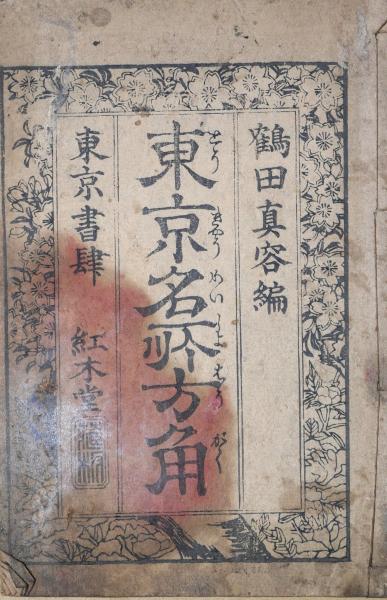 鶴田真容編
東京名所方角
とうきやうめいしよはうがく
東京書肆 紅木堂